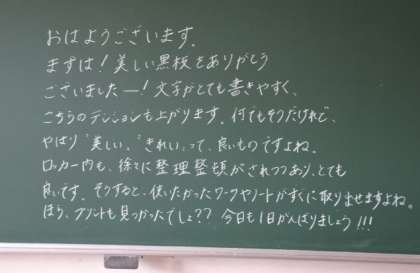 おはようございます。
まずは！美しい黒板をありがとう
ございましたー！文字がとても書きやすく、
こちらのテンションも上がります。何でもそうだけれど、
やはり"美しい、"きれい"って、良いものですよね。
ロッカー内も、徐々に整理整頓がされつつあり、とても
良いです。そうすると、使いたかったワークやノートがすぐに取り出せますよね。
ほら、プリントも見つかったでしょ？？今日も1日がんばりましょう！！！